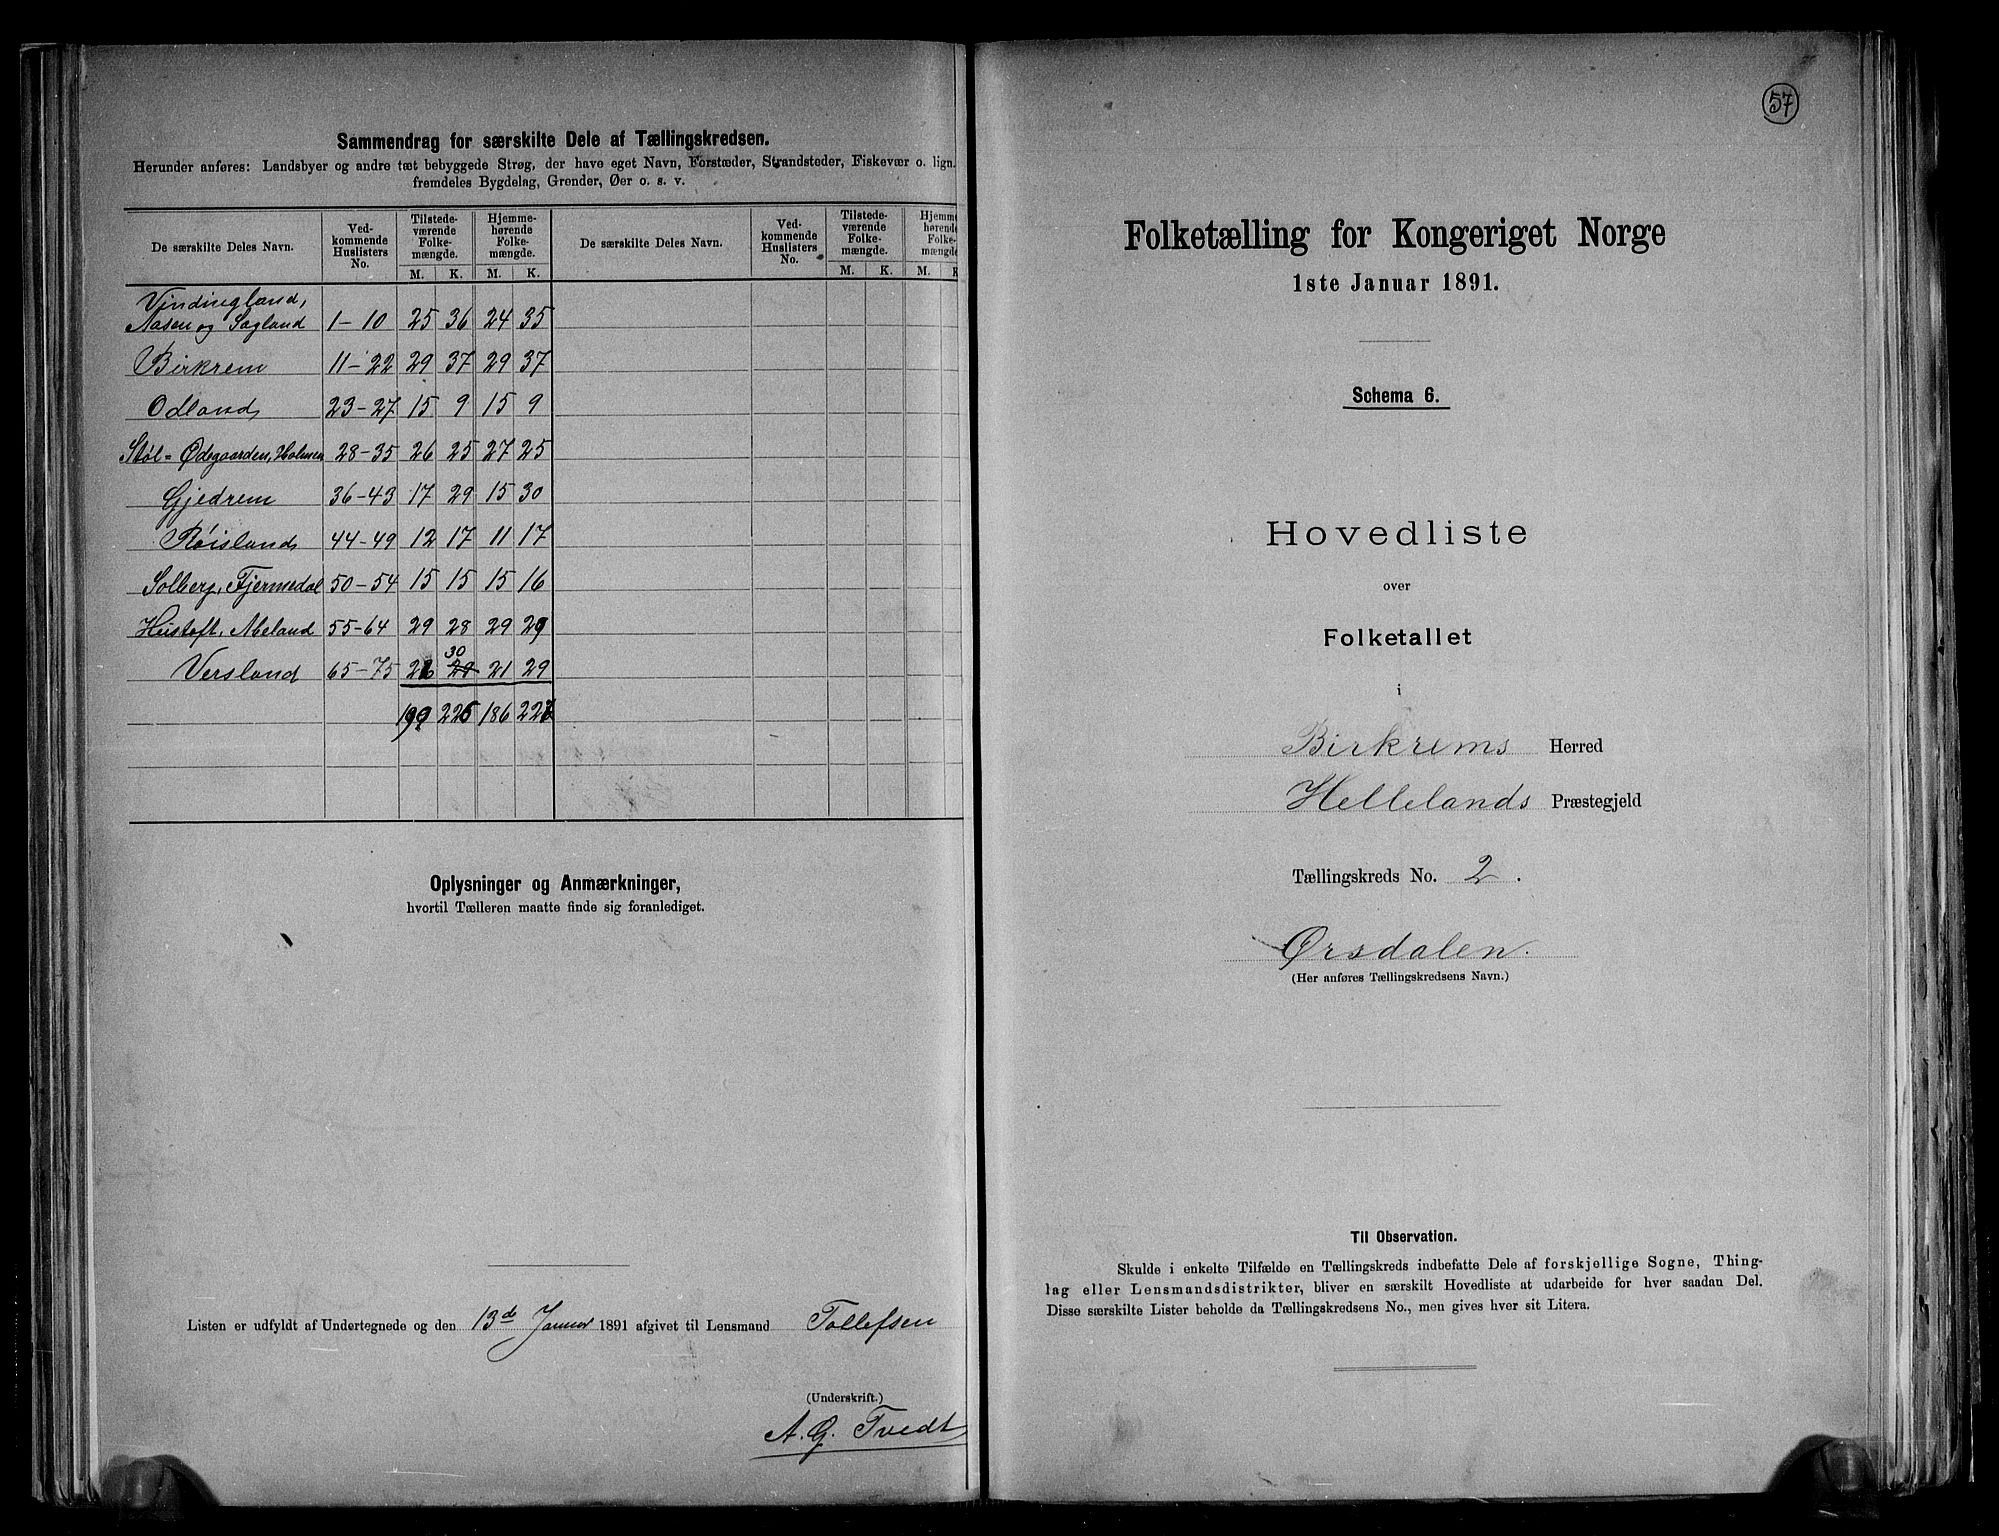 Sammendrag for særskilte Dele af Tællingskredsen.
Herunder anføres: Landsbyer og andre tæt bebyggede Strøg, der have eget Navn, Forstæder, Strandsteder, Fiskevær o. lign.
fremdeles Bygdelag, Grender, Øer o. s. v.
De særskilte Deles Navn. Ved-kommende Huslisters No. Tilstede-værende Folke-mængde. M. K. Hjemme-hørende Folke-mængde. M. K. De særskilte Deles Navn. Ved-kommende Huslisters No. Tilstede-værende Folke-mængde. M. K. Hjemm hørende Folke- mængde M. K
Vindingland,
Aasen og Sagland 1-10 25 36 24 35
Birkrem 11-22 29 37 29 37
Odland 23-27 15 9 15 9
Støl= Ødegaarden, Holmen 28-35 26 25 27 25
Gjedrem 36-43 17 29 15 30
Røisland 44-49 12 17 11 17
Solberg, Fjermedal 50-54 15 15 15 16
Heistoft, Abeland 55-64 29 28 29 29
30
Versland 65-75 21 29
186
Oplysninger og Anmærkninger,
hvortil Tælleren maatte finde sig foranlediget.
Listen er udfyldt af Undertegnede og den 13de Januar 1891 afgivet til Lensmand Tollefsen
(Underskrift.)
A. G. Tvedt
57
Folketælling for Kongeriget Norge
1ste Januar 1891.
Schema 6.
Hovedliste
over
Folketallet
i
Birkrems Herred
Hellelands Præstegjeld
Tællingskreds No. 2.
Ørsdalen.
(Her anføres Tællingskredsens Navn.)
Til Observation.
Skulde i enkelte Tilfælde en Tællingskreds indbefatte Dele af forskjellige Sogne, Thing-
lag eller Lensmandsdistrikter, bliver en særskilt Hovedliste at udarbeide for hver saadan Del.
Disse særskilte Lister beholde da Tællingskredsens No., men gives hver sit Litera.